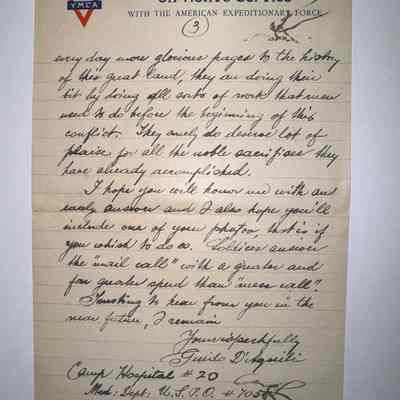 On Active Service
YMCA
WITH THE AMERICAN EXPEDITIONARY FORCE
3
every day more glorious pages to the history
of this great land, they are doing their
bit by doing all sorts of work that men
used to do before the beginning of this
conflict. They surely do deserve lot of
praise for all the noble sacrifices they
have already accomplished.
I hope you will honor me with an
early answer and I also hope you'll
include one of your photos, that is if
you which to do so. Soldiers answer
the "mail call" with a greater and
far greater speed than "mess call".
Trusting to hear from you in the
near future, I remain
Yours respectfully
Guido D'
Camp Hospital #20
Med: Dept: U.S.P.O. #705